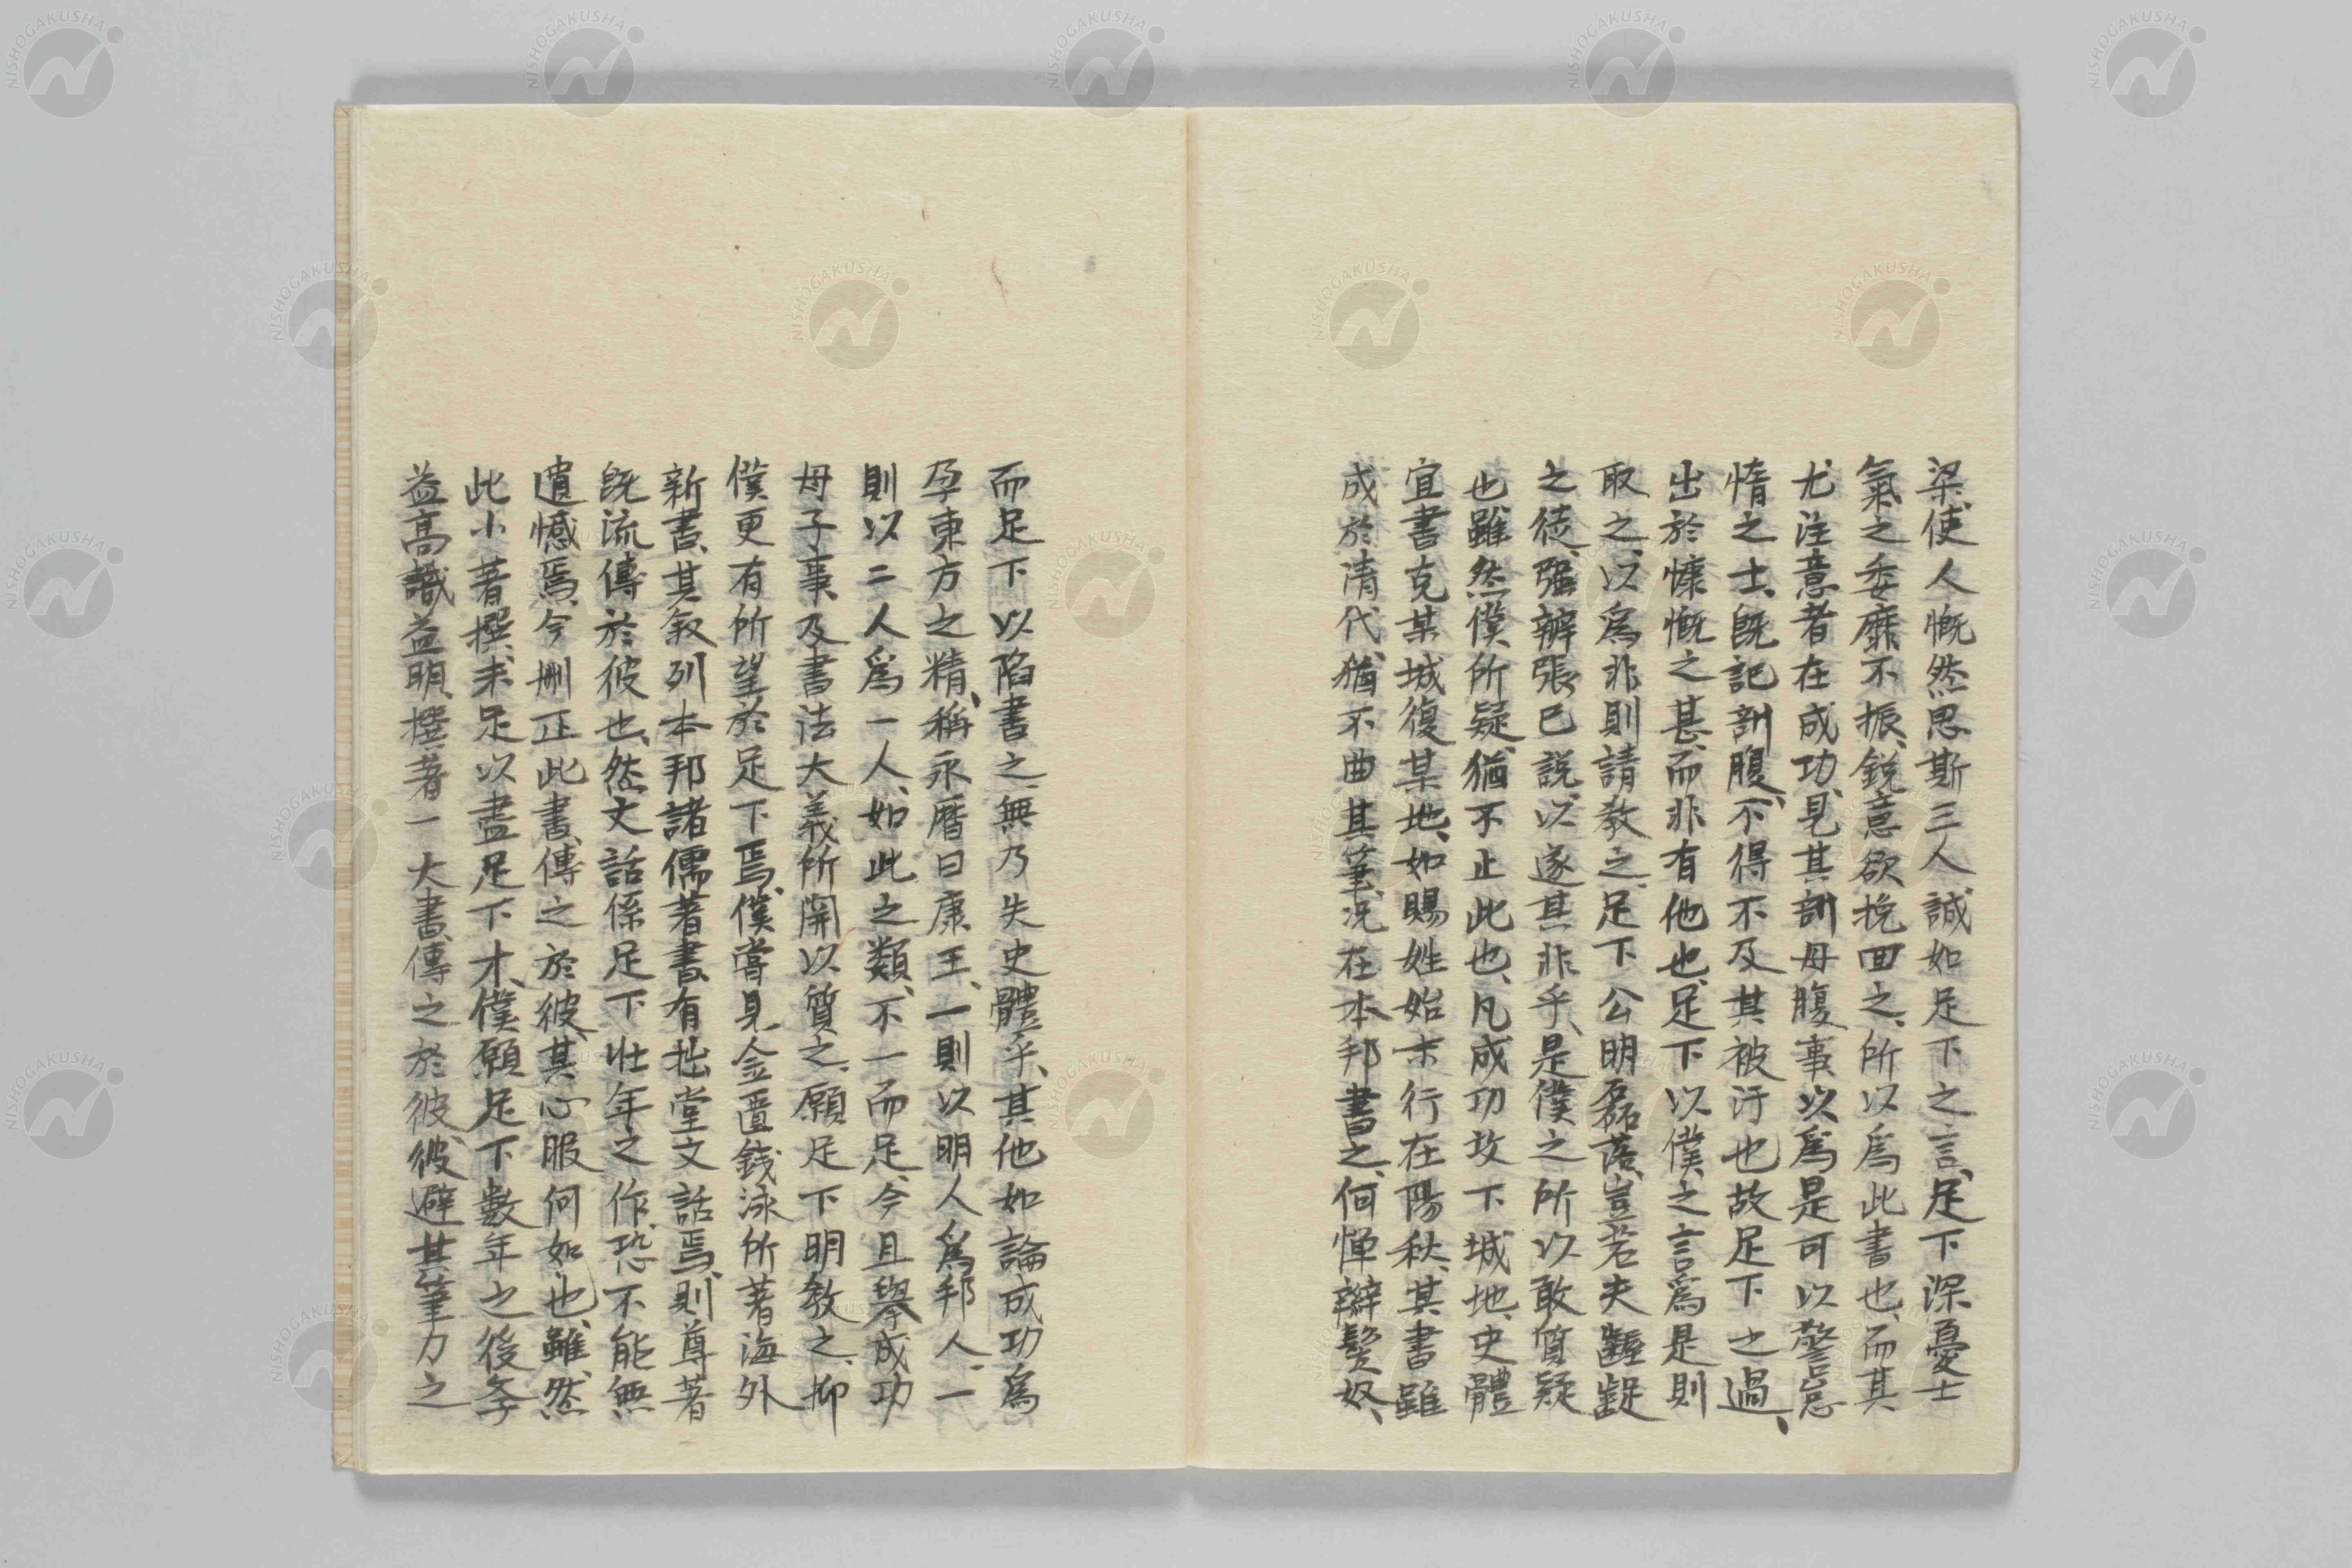 梁、使人慨然思斯三人、誠如足下之言、足下深憂士
氣之委靡不振、鋭意欲挽回之、所以爲此書也、而其
尤注意者在成功、見其剖母腹事、以爲是可以警怠
惰之士、既記剖腹、不得不及其被汙也、故足下之過、
出於慷慨之甚、而非有他也、足下以僕之言爲是則
取之、以爲非則請教之、足下公明磊落、豈若夫齷齪
之徒、強辨張已説、以遂其非乎、是僕之所以敢質疑
也、雖然僕所疑、猶不止此也、凡成功攻下城地、史體
宜書克某城復某地、如賜姓始末行在陽秋、其書雖
成於清代、猶不曲其筆、况在本邦書之、何憚辮髮奴、
而足下以陷書之、無乃失史體乎、其他如論成功爲
孕東方之精、稱永曆曰康王、一則以明人爲邦人、一
則以二人爲一人、如此之類、不一而足、今且擧成功
母子事及書法大義所關以質之、願足下明教之、抑
僕更有所望於足下焉、僕嘗見金匱錢泳所著海外
新書、其叙列本邦諸儒著書、有拙堂文話焉、則尊著
既流傳於彼也、然文話係足下壮年之作、恐不能無
遺憾焉、今刪正此書、傳之於彼、其心服何如也、雖然
此小著撰、未足以盡足下才、僕願足下數年之後、年
益高識益明、撰著一大書、傳之於彼、彼避其筆力之
NISHOGAKUSHA